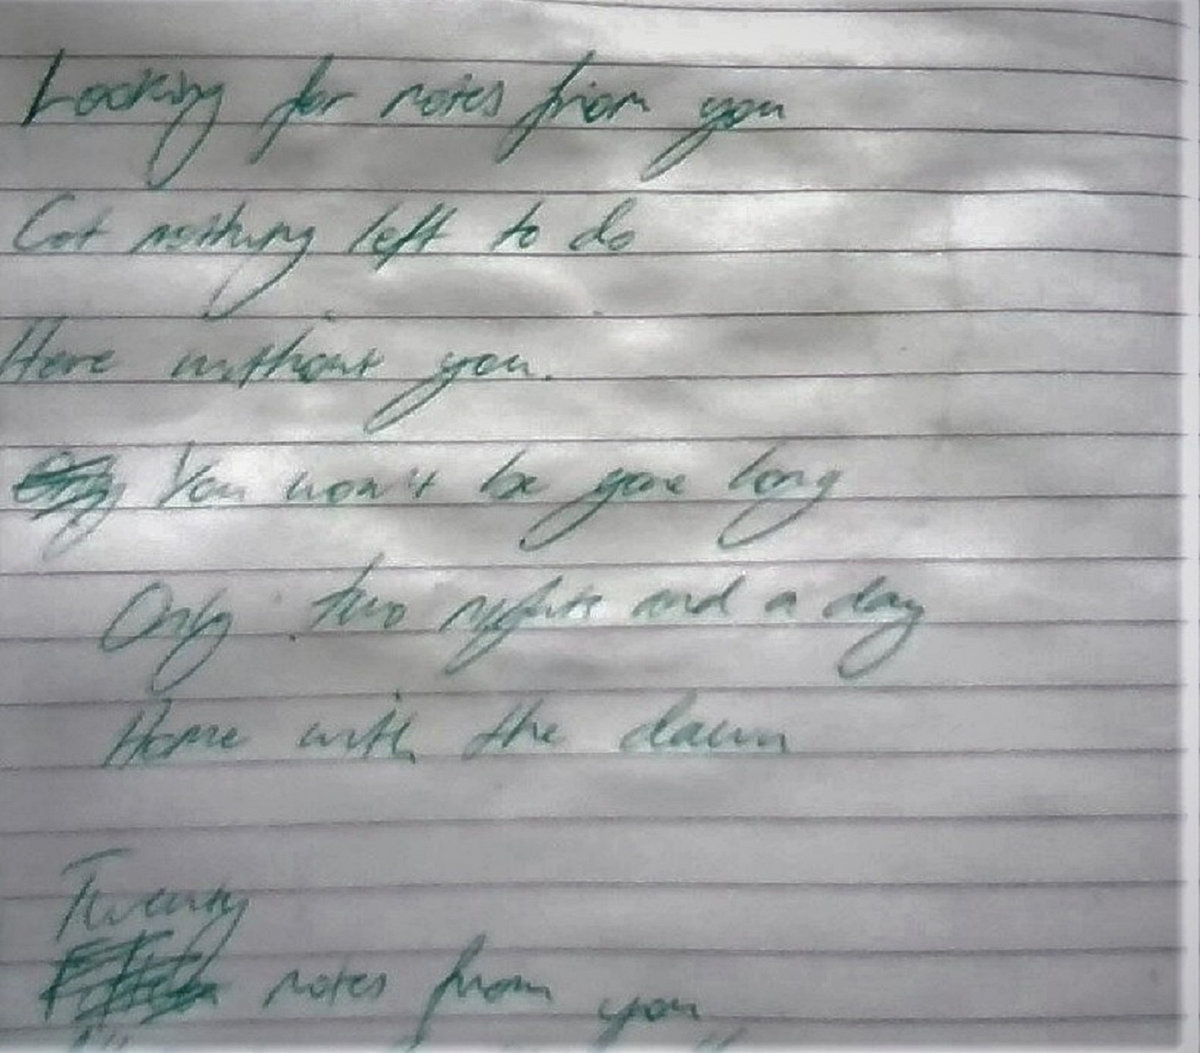 Looking for notes from you
Got nothing left to do
Here without you.
You won't be gone long
Only two nights and a day
Home with the dawn
Twenty
notes from you